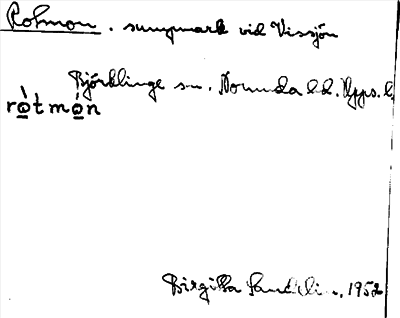 Rotmon. sumpmark vid Vissjön
Björklinge sn. Norunda hd. Upps. l.
ròtmón
Birgitta 1952